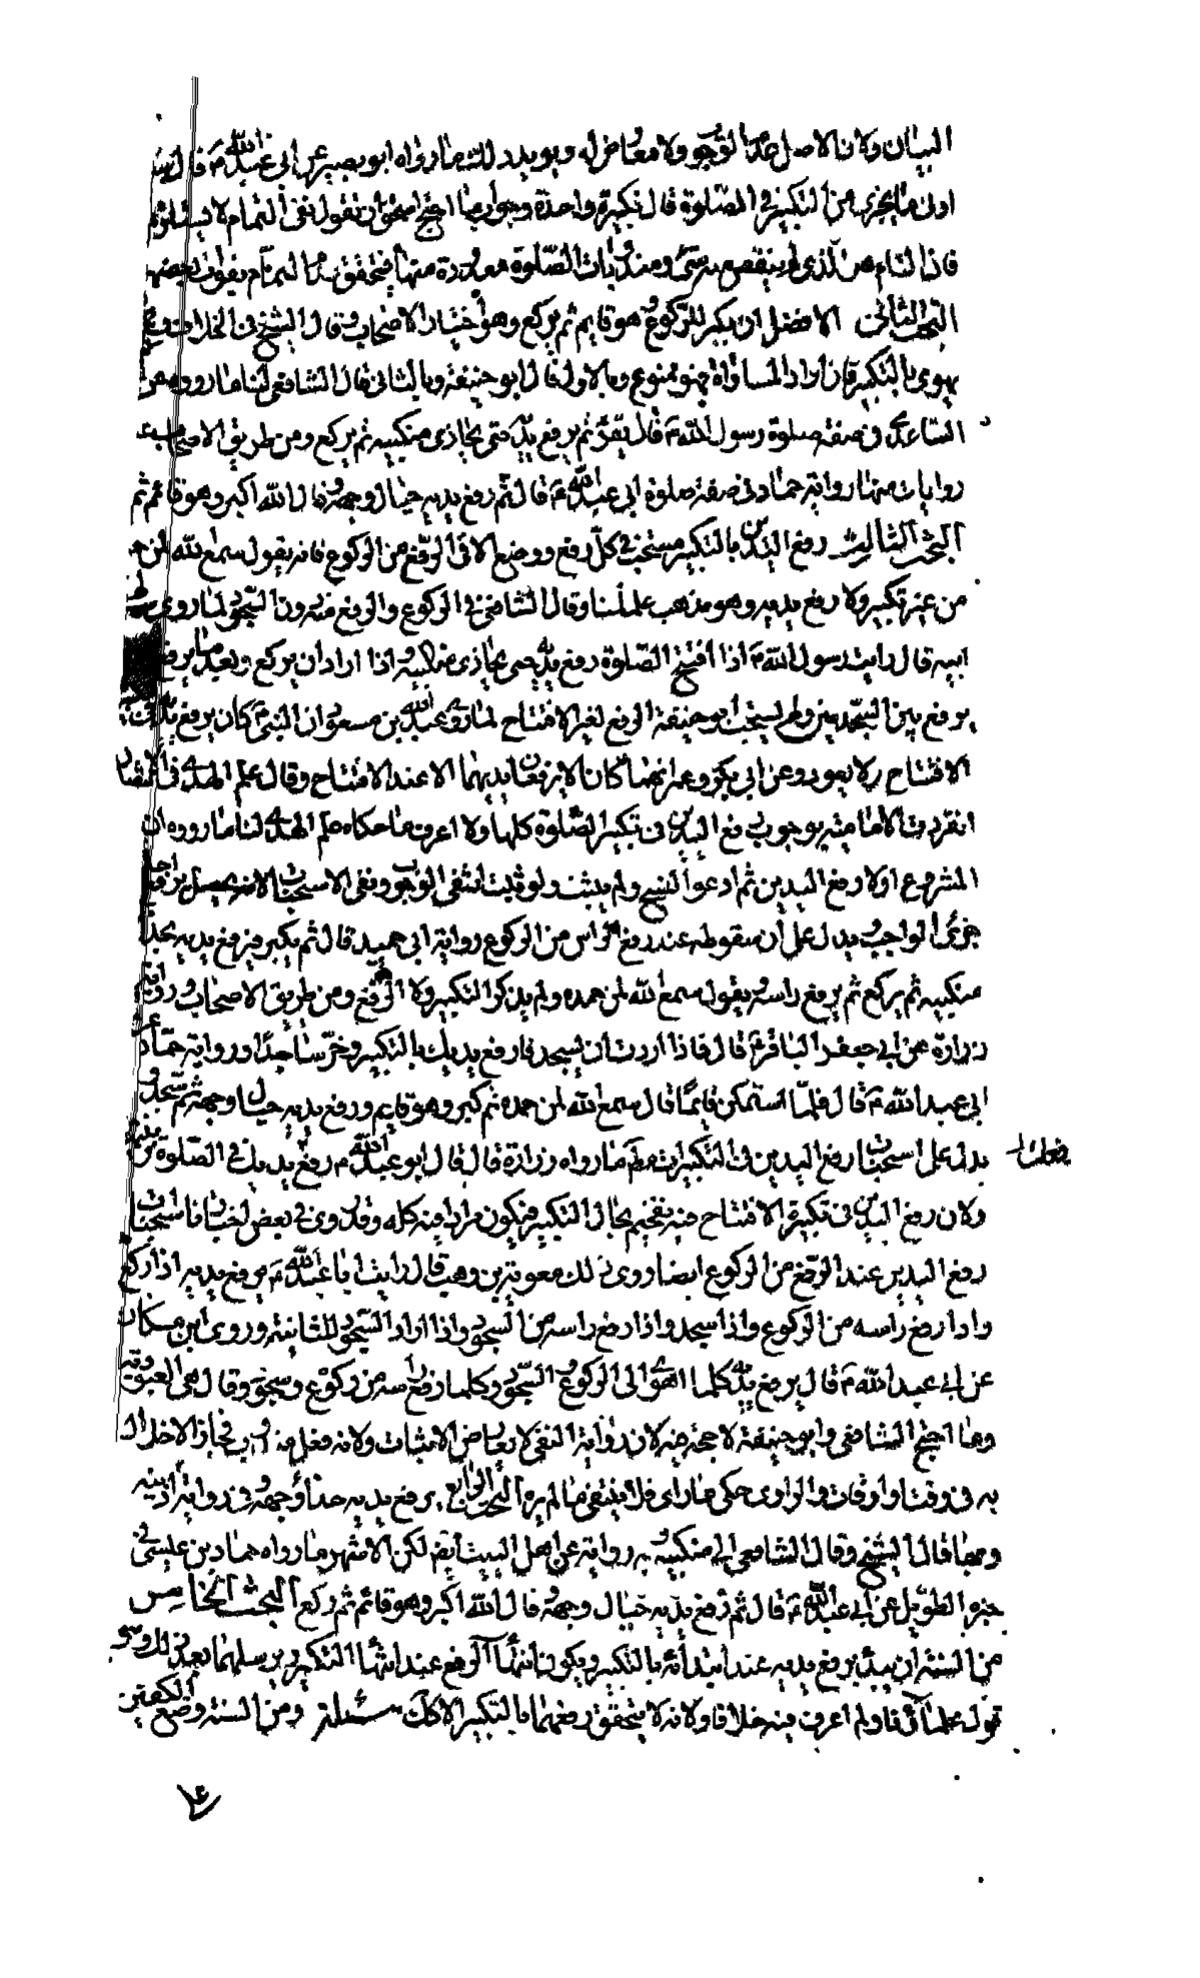 البيان ولان الاصل عدم الوجوب ولا معارض له ويويد ذلك ما رواه ابو بصير عن ابى عبد الله ع قال
ادنى ما يجزى من التكبير فى الصلوة قال تكبيرة واحدة وهو ما احتج اسحق ان نقول نفى التمام لا يستلزم
فاذا التام هو الذى لم ينقص منه شئ ومندوبات الصلوة معدودة منها فيتحقق عدم التمام بفوات بعضها
البحث الثانى الافضل ان يكبر للركوع وهو قايم ثم يركع وهو اختيار الاصحاب وقال الشيخ فى الخلاف
يهوى بالتكبير فان اراد المساواة فهو ممنوع وبالاول قال ابو حنيفة وبالثانى قال الشافعى لنا ما رووه عن
الساعدى فى صفة صلوة رسول الله ص قال يقرا ثم يرفع يديه حتى يحاذى منكبيه ثم يركع ومن طريق الاصحاب
روايات منها رواية حماد فى صفة صلوة ابى عبد الله ع قال ثم رفع يديه حيال وجهه وقال الله اكبر وهو قائم ثم
البحث الثالث رفع اليدين بالتكبير مستحب فى كل رفع ووضع الا فى الرفع من الركوع فانه يقول سمع الله لمن
من غير تكبير ولا رفع يديه وهو مذهب علمائنا وقال الشافعى فى الركوع والرفع منه دون السجود لما روى
ابيه قال رايت رسول الله ص اذا افتتح الصلوة رفع يديه حتى يحاذى منكبيه واذا اراد ان يركع وبعد ما يرفع
يرفع بين السجدتين ولم يستحب ابو حنيفة الرفع لغير الافتتاح لما روى عبد الله بن مسعود ان النبى ص كان يرفع يديه
الافتتاح ولا يعود وعن ابى بكر وعمر انهما كانا لا يرفعان ايديهما الا عند الافتتاح وقال علم الهدى فى
انفردت الامامية بوجوب رفع اليدين فى تكبير الصلوة كلها ولا اعرف ما حكاه علم الهدى لنا ما رووه ان
المشروع اولا رفع اليدين ثم ادعوا النسخ ولم يثبت ولو ثبت انتفى الوجوب ونفى الاستحباب لانه
جزئى الواجب يدل على ان سقوطه عند رفع الراس من الركوع رواية ابى حميد قال ثم يكبر فيرفع يديه يحاذى
منكبيه ثم يركع ثم يرفع راسه ويقول سمع الله لمن حمده ولم يذكر التكبير ولا الرفع ومن طريق الاصحاب رواية
زرارة عن ابى جعفر الباقر ع قال فاذا اردت ان تسجد فارفع يديك بالتكبير وخر ساجدا ورواية حماد
ابى عبد الله ع قال فلما استمكن قائما قال سمع الله لمن حمده ثم كبر وهو قايم ورفع يديه حيال وجهه ثم سجد و
يدل على استحباب رفع اليدين فى التكبيرات ما رواه زرارة قال قال ابو عبد الله ع رفع يديك فى الصلوة
ولان رفع اليدين فى تكبيرة الافتتاح فيه تفخيم بحال التكبير فيكون مرادا فيه كله وقد روى فى بعض اخبارنا استحباب
رفع اليدين عند الرفع من الركوع ايضا روى ذلك معوية بن وهب قال رايت ابا عبد الله ع يرفع يديه اذا ركع
واذا رفع راسه من الركوع واذا سجد واذا رفع راسه من السجود واذا اراد السجود للثانية وروى ابن مسكان
عن ابى عبد الله ع قال يرفع يديه كلما اهوى الى الركوع والسجود وكلما رفع راسه من ركوع وسجود وقال هى العبودية
وما احتج الشافعى وابو حنيفة لا حجة فيه لان رواية النفى لا يعارض الاثبات ولانه فعل مندوب فجاز الاخلال
به فى وقت او اوقات والراوى حكى ما راى فلا ينتفى ما لم يره البحث الرابع يرفع يديه حذاء وجهه وفى رواية اذنيه
وبها قال الشيخ وقال الشافعى الى منكبيه وبه رواية عن اهل البيت ايضا لكن الاشهر ما رواه حماد بن عيسى فى
خبره الطويل عن ابى عبد الله ع قال ثم رفع يديه حيال وجهه وقال الله اكبر وهو قائم ثم ركع البحث الخامس
من السنة ان يبدء برفع يديه عند ابتدائه بالتكبير ويكون انتهاء الرفع عند انتهاء التكبير ويرسلهما بعد ذلك وهو
قول علمائنا ولم اعرف فيه خلافا ولانه لا يتحقق رفعهما بالتكبير الا كذلك مسئلة ومن السنة وضع الكفين